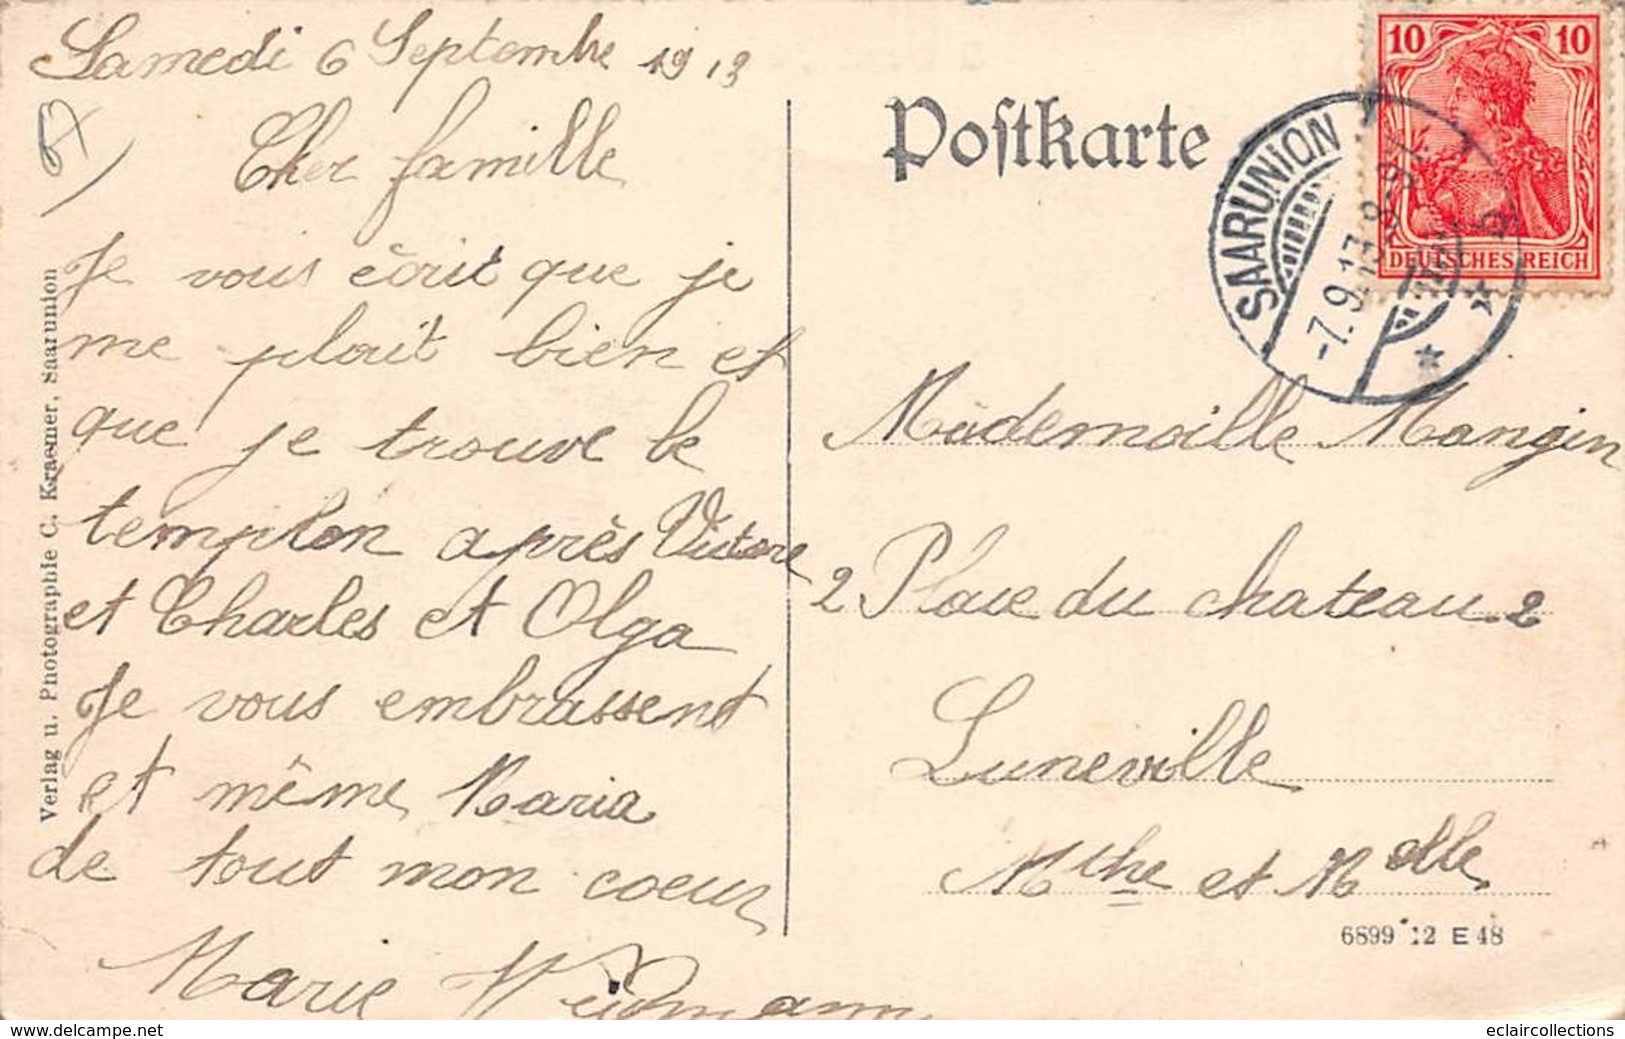 Samedi 6 Septembre 1913
57
Cher famille
Je vous écrit que je
me plait bien et
que je trouve le
templon après Victore
et Charles et Olga
Je vous embrassent
et même Maria
de tout mon coeur
Marie
Verlag u. Photographie C. Kraemer, Saarunion
Postkarte
10 10
DEUTSCHES REICH
SAARUNION
-7.9.13.8-9
Mademoiselle Mangin
2 Place du chateau 2
Luneville
Mthe et Melle
6899 12 E 48
eclaircollections